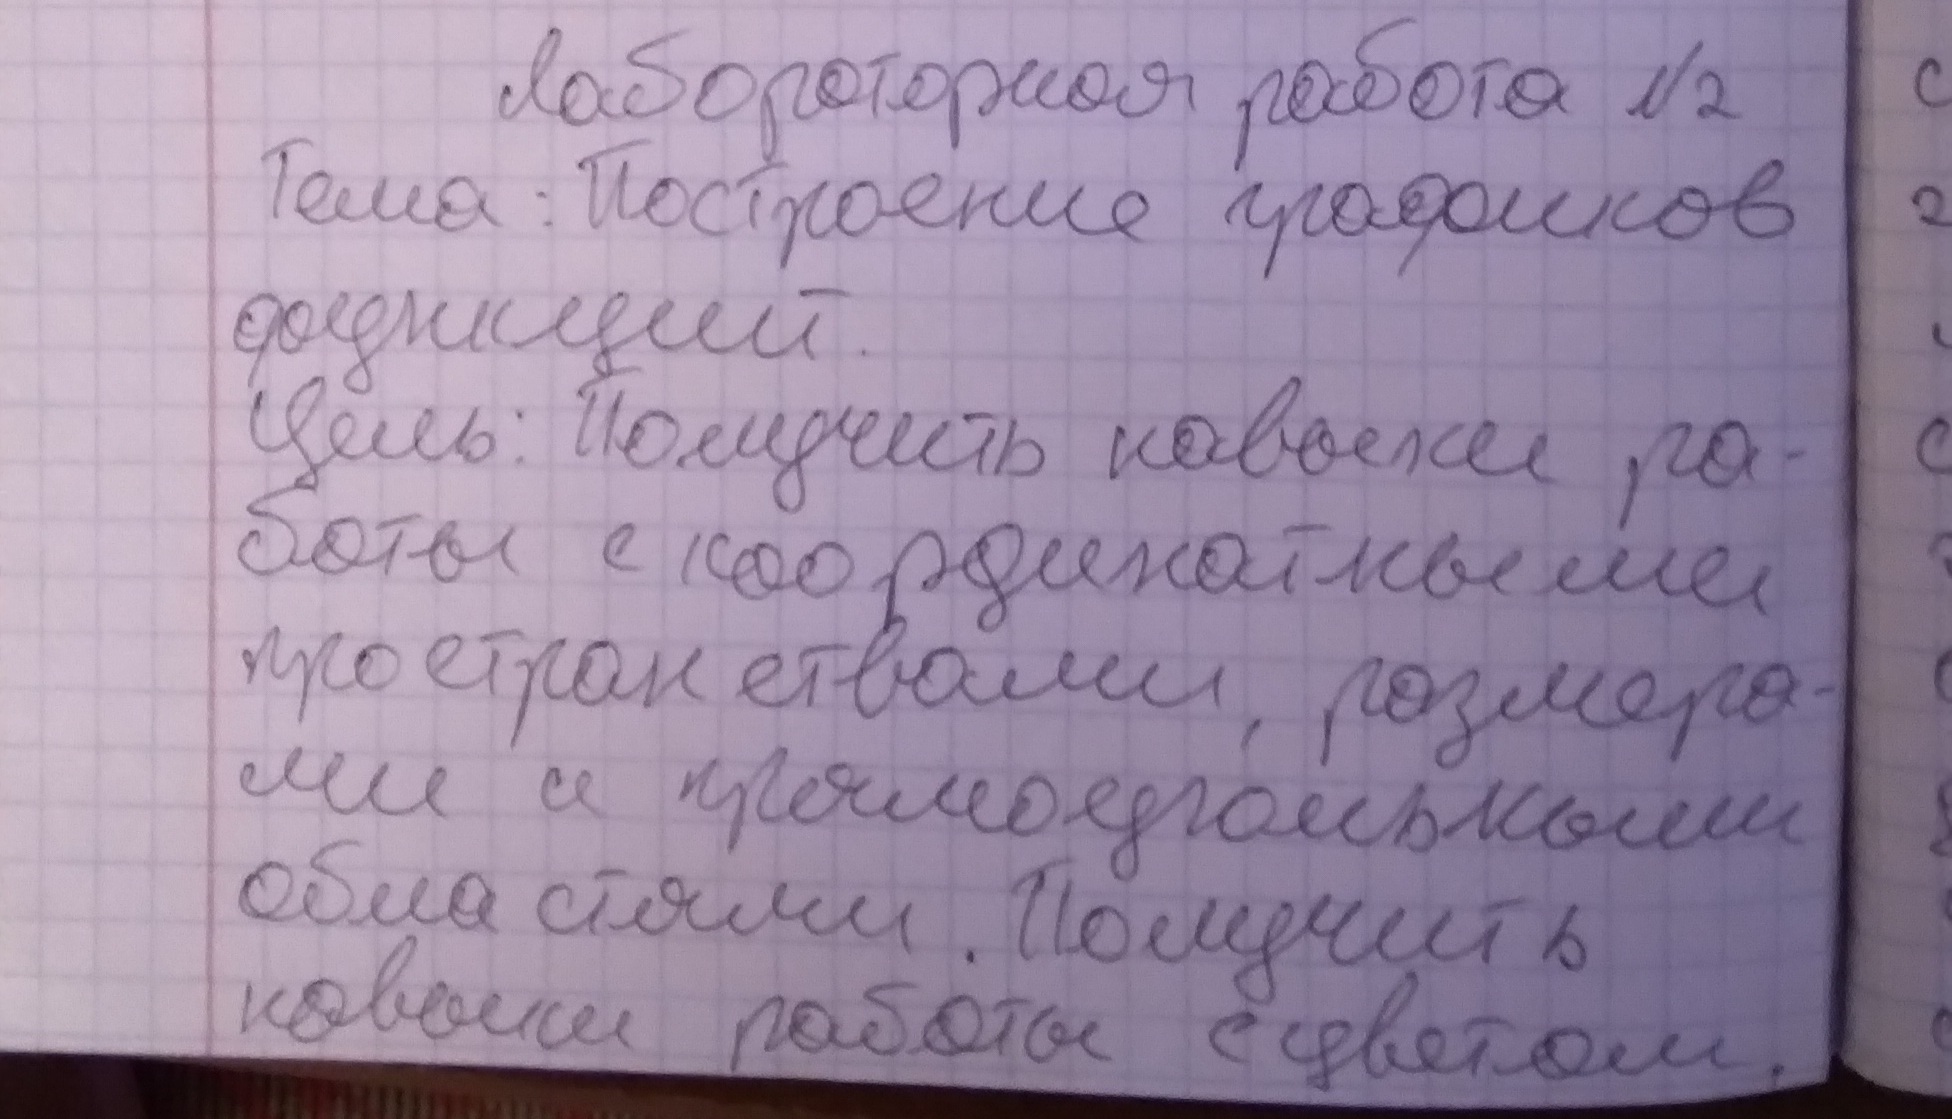 Лабораторная работа №2
Тема: Построение графиков
функций.
Цель: Получить навыки ра-
боты с координатными
пространствами, размера-
ми и прямоугольными
областями. Получить
навыки работы с цветом.